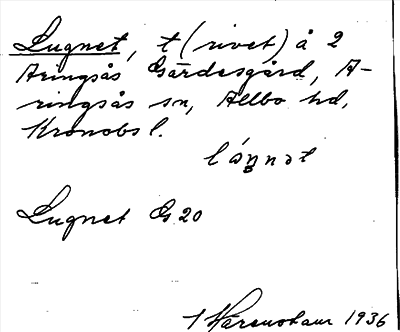 Lugnet, t (rivet) å 2
Aringsås Gärdesgård, A-
ringsås sn, Allbo hd,
Kronobs l.
lᔋnət
Lugnet G 20
1936